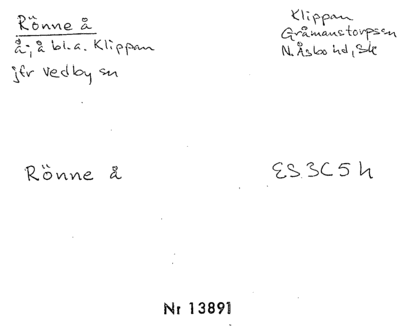 Rönne å
å; å bl.a. Klippan
jfr Vedby sn
Klippan
Gråmanstorpssn
N. Åsbo hd, Sk
Rönne å
ES 3C5h
Nr 13891